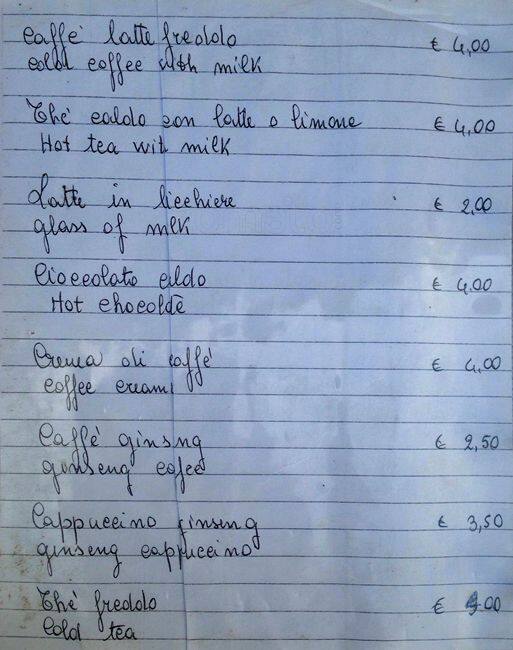 Caffè latte freddo € 4,00
cold coffee with milk
Thè caldo con latte o limone € 4,00
Hot tea wit milk
Latte in bicchiere € 2,00
glass of mlk
Cioccolato caldo € 4,00
Hot chocolde
Crema di caffè € 4,00
coffee cream
Caffè ginsng € 2,50
ginseng cofee
Cappuccino ginseng € 3,50
ginseng cappuccino
Thè freddo € 4,00
Cold tea